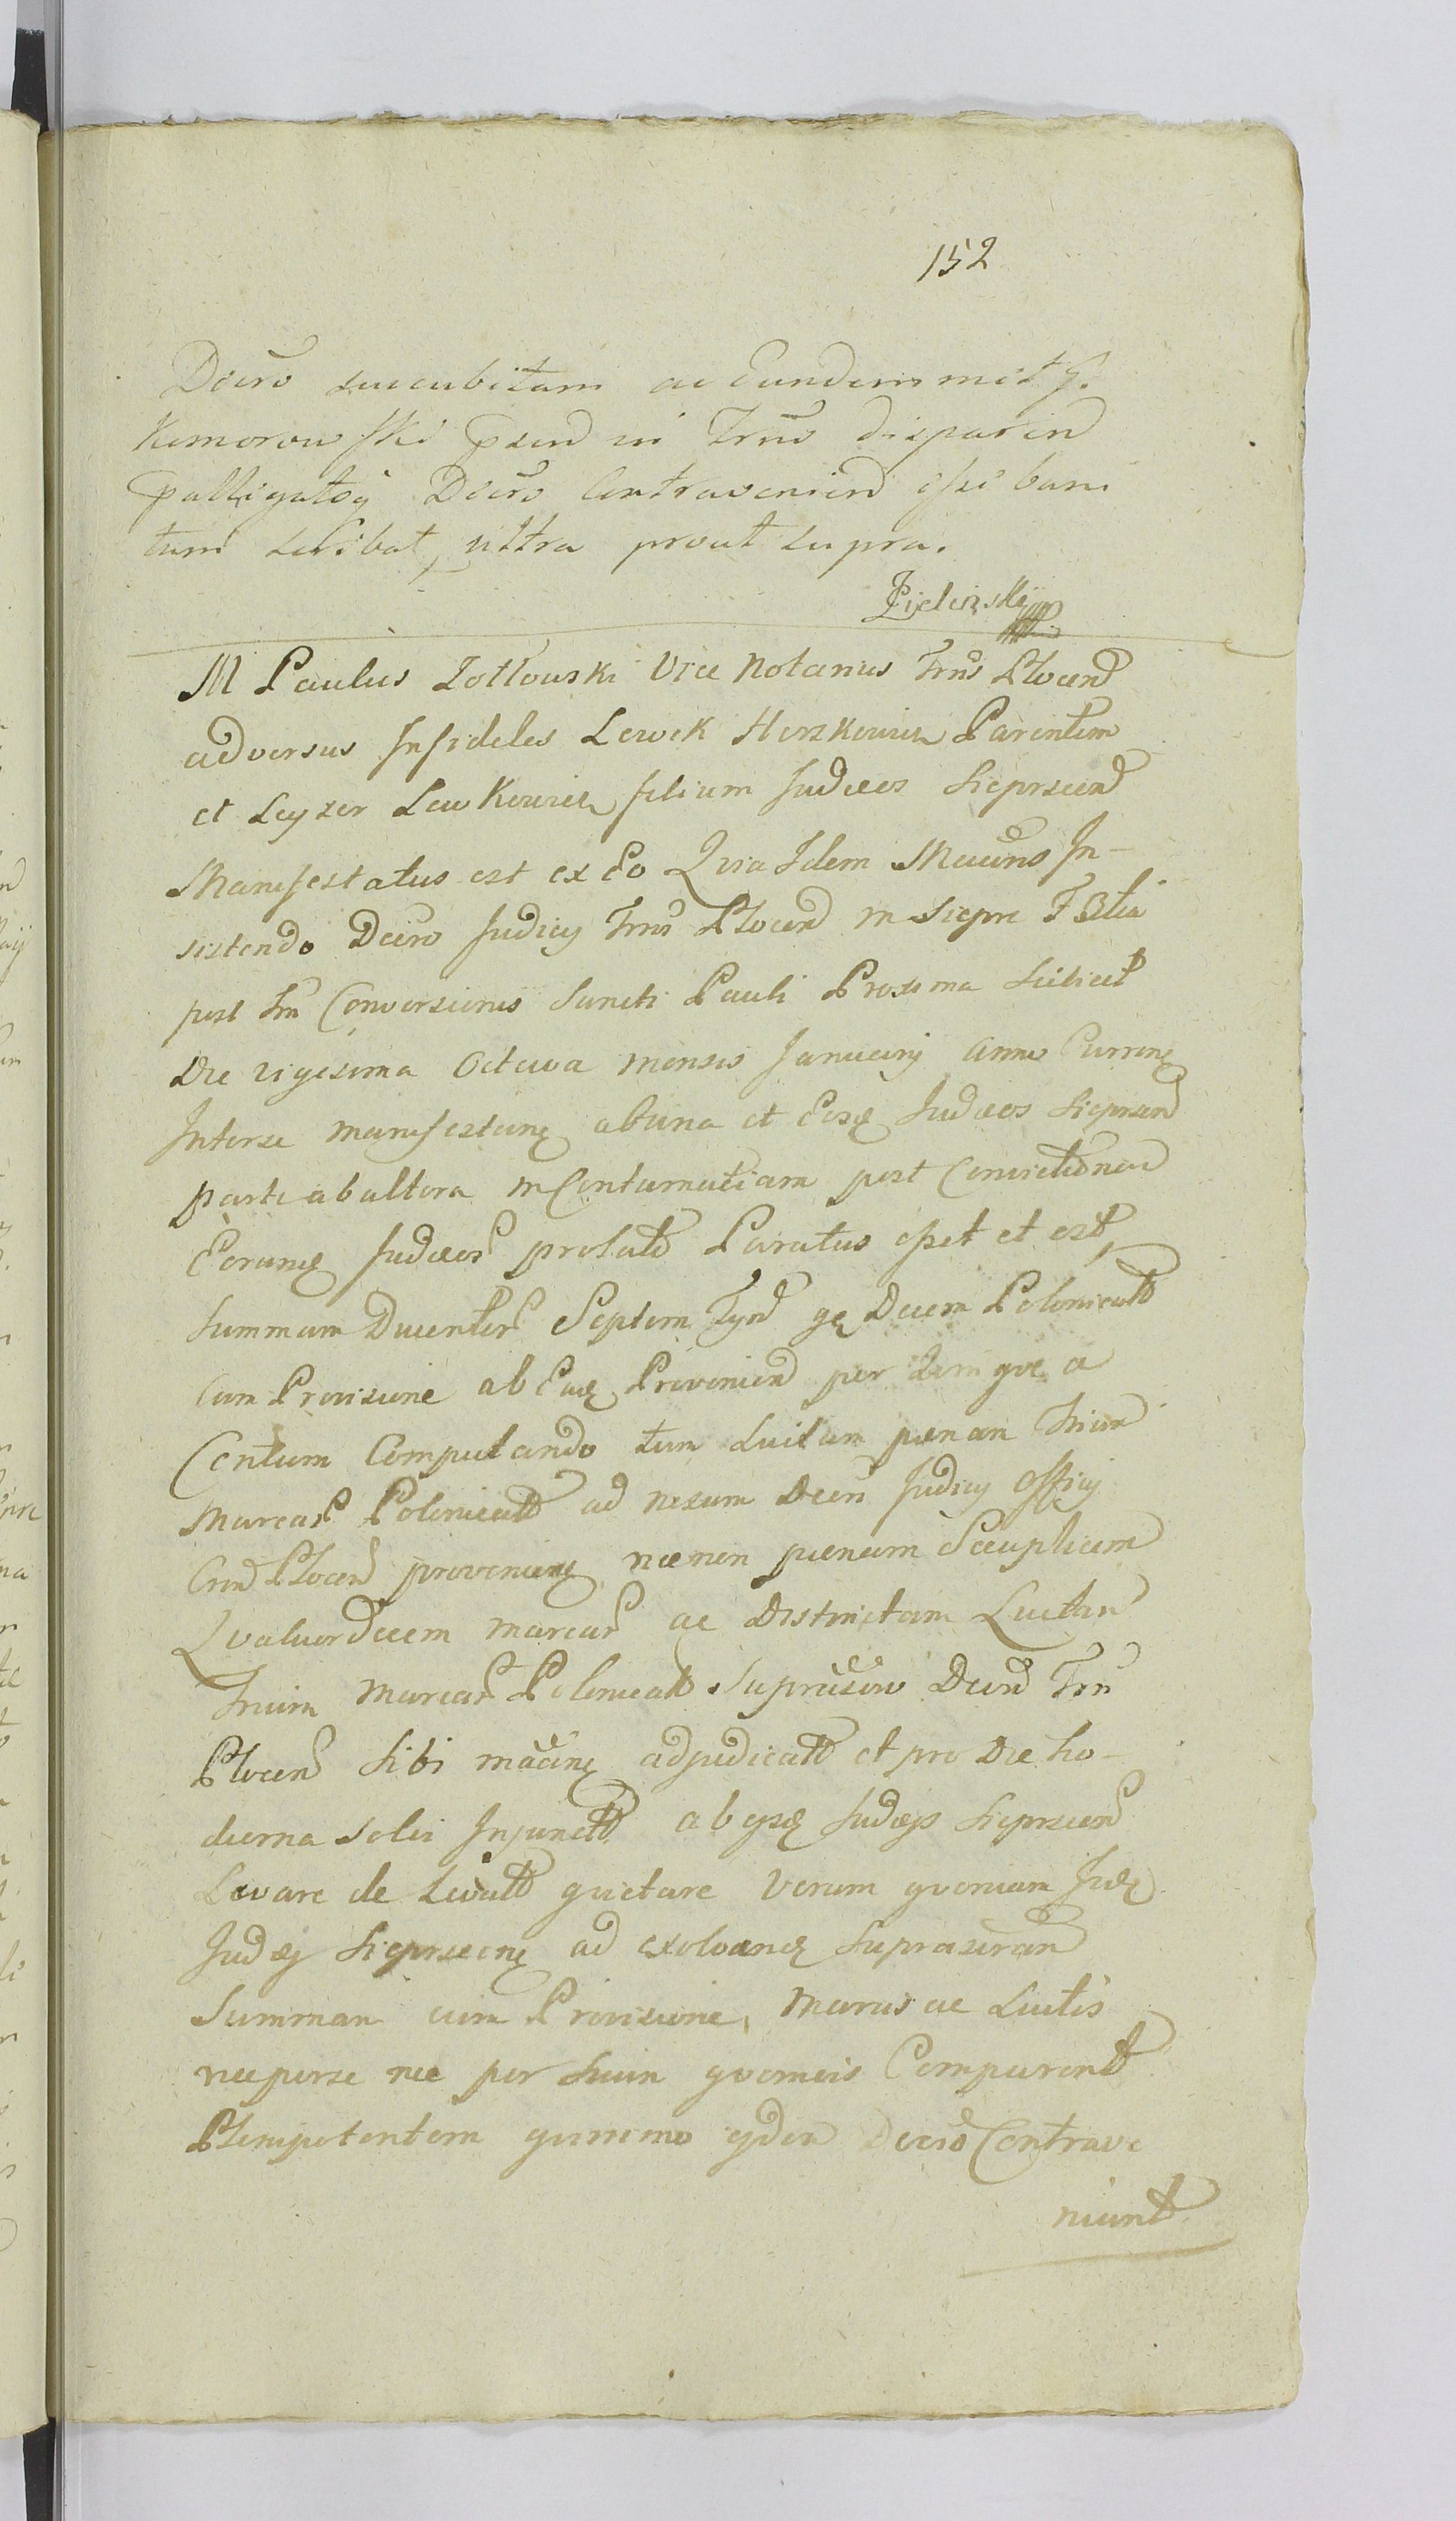 152
Decro succubitam ac Eundemmet G.
Komorowski psend in Trno disparen
palligatoq Decro Contravenien esse bani
tum scribat, ultra prout supra.
Zielinski
M Paulus Zottowski Vice Notarius Trris Plocen
adversus Infideles Lewek Herszkowicz Parentem
et Leyzer Lewkowicz filium Judæos Sieprscen
Manifestatus est ex Eo Qvia Idem Macūns In-
sistendo Decro Judicy Trris Plocen in Siepre F 3tia
post Fm Conversionis Sancti Pauli Proxima Scilicet
Die vigesima Octava mensis January anno Curren
Interse manifestane abuna et Eosq Judæos Sieprscen
parte abaltera in Contumatiam post Convictionem
Eorumq Judæor prolato Paratus esset et est,
Summam Ducentor Septem Tyn gr Decem Polonicall
cum Provisione ab Eaq Provenien per Septem gve a
Centum Computando tum Luitam pænam Trium
Marcar Polonicall ad nexum Decri Judicy Officy
Cren Plocen provenien, nec non pænam Sceuplicem
Qvatuordecem marcar ac Distinctam Luitam
Trium Marcar Polonicall Supra Decro Trri
Plocen Sibi macinq adjudicall et pro Die ho-
dierna solvi Injunctt ab ysq Judæys Sieprscen
Levare de Levatt qvietare Verum qvoniam Jidē
Judæy Sieprscenq ad exolvenq Suprascram
Summam cum Provisione, Marcis ac Luitis
nec per se nec per Suum qvempiis Comparent
Plenipotentem qvinimo ydem Decro Contrave
niunt